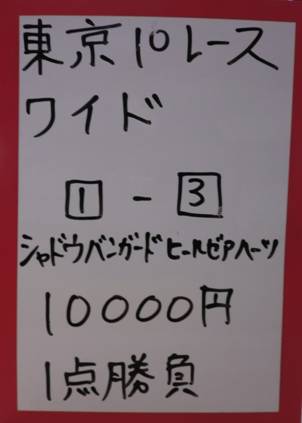 東京10レース
ワイド
1 - 3
シャドウバンガード ヒールゼアハーツ
10000円
1点勝負